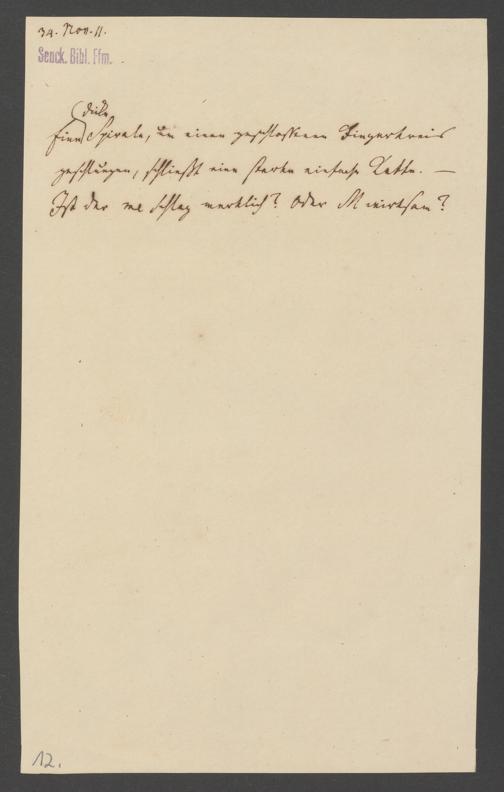 34. Nov. 11.
Senck. Bibl. Ffm.
dicke
Eine Spirale, um einen geschlossenen Fingerkreis
geschlungen, schließt eine starke einfache Kette. —
Ist der Schlag merklich? Oder M wirksam?
12.